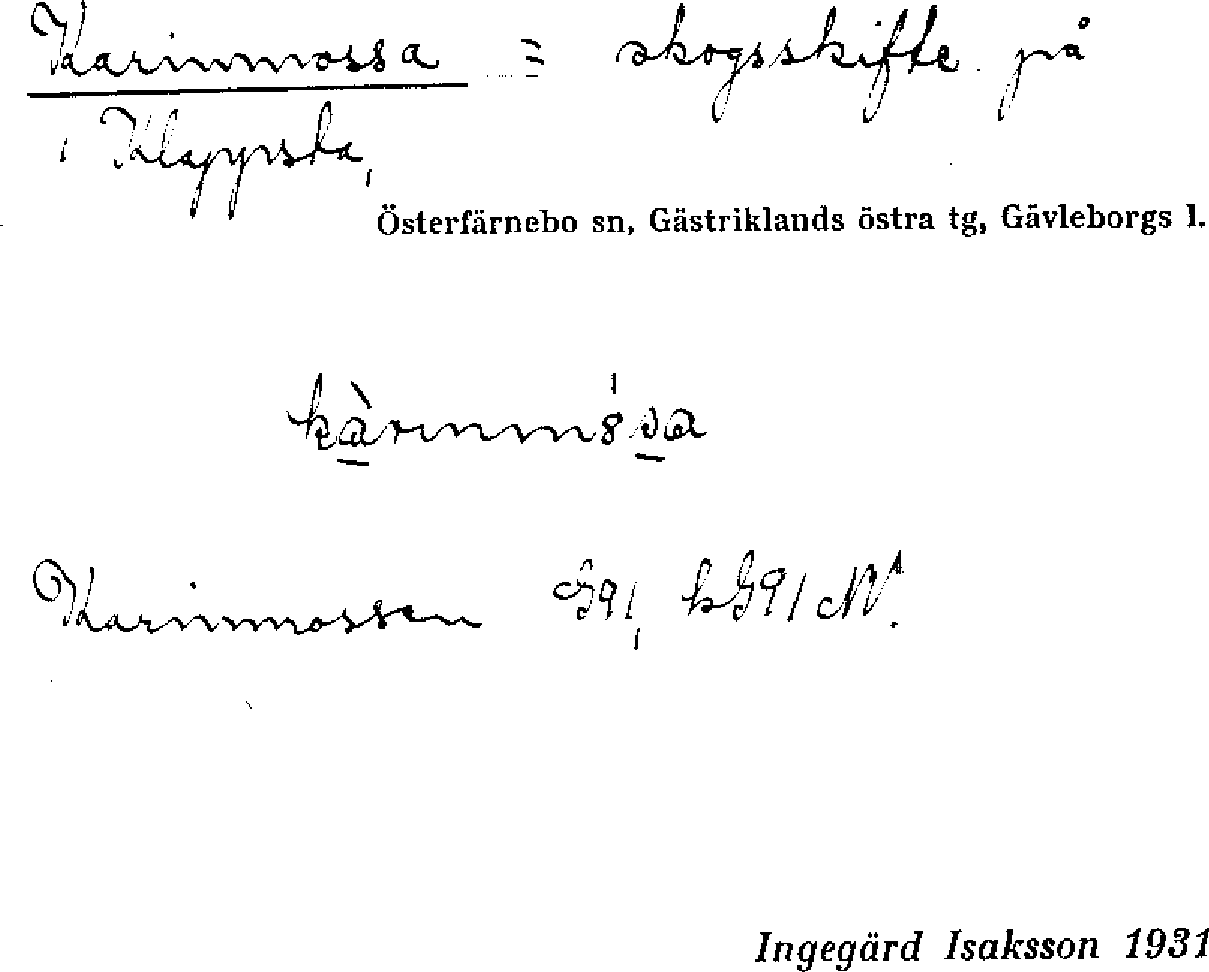 Karinmossa = skogsskifte på
i Klappsta,
Österfärnebo sn, Gästriklands östra tg, Gävleborgs l.
Karinmossen
Ingegärd Isaksson 1931